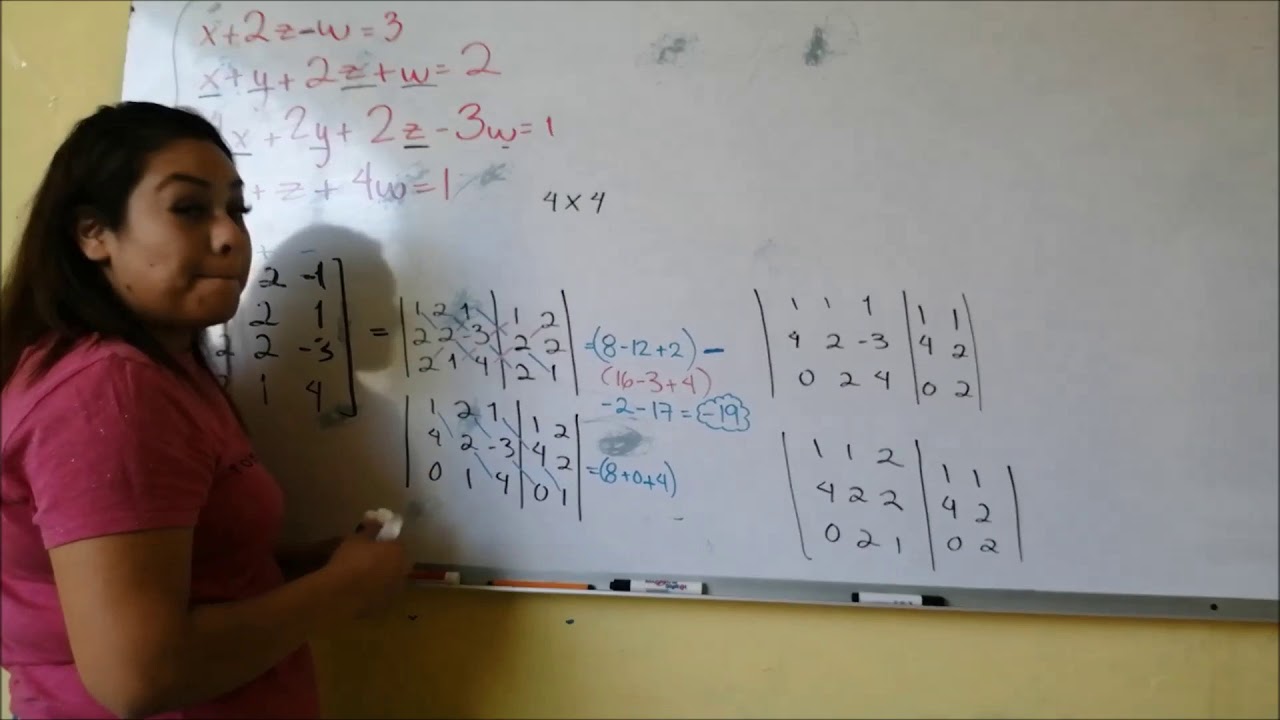 x+2z-w=3
x+y+2z+w=2
x+2y+2z-3w=1
+z+4w=1
4x4
2 -1
2 1
2 2 -3
1 4
=
1 2 1 | 1 2
2 2 -3 | 2 2
2 1 4 | 2 1
=(8-12+2)-
(16-3+4)
-2-17=-19
1 2 1 | 1 2
4 2 -3 | 4 2
0 1 4 | 0 1
=(8+0+4)
-
1 1 1 | 1 1
4 2 -3 | 4 2
0 2 4 | 0 2
1 1 2 | 1 1
4 2 2 | 4 2
0 2 1 | 0 2